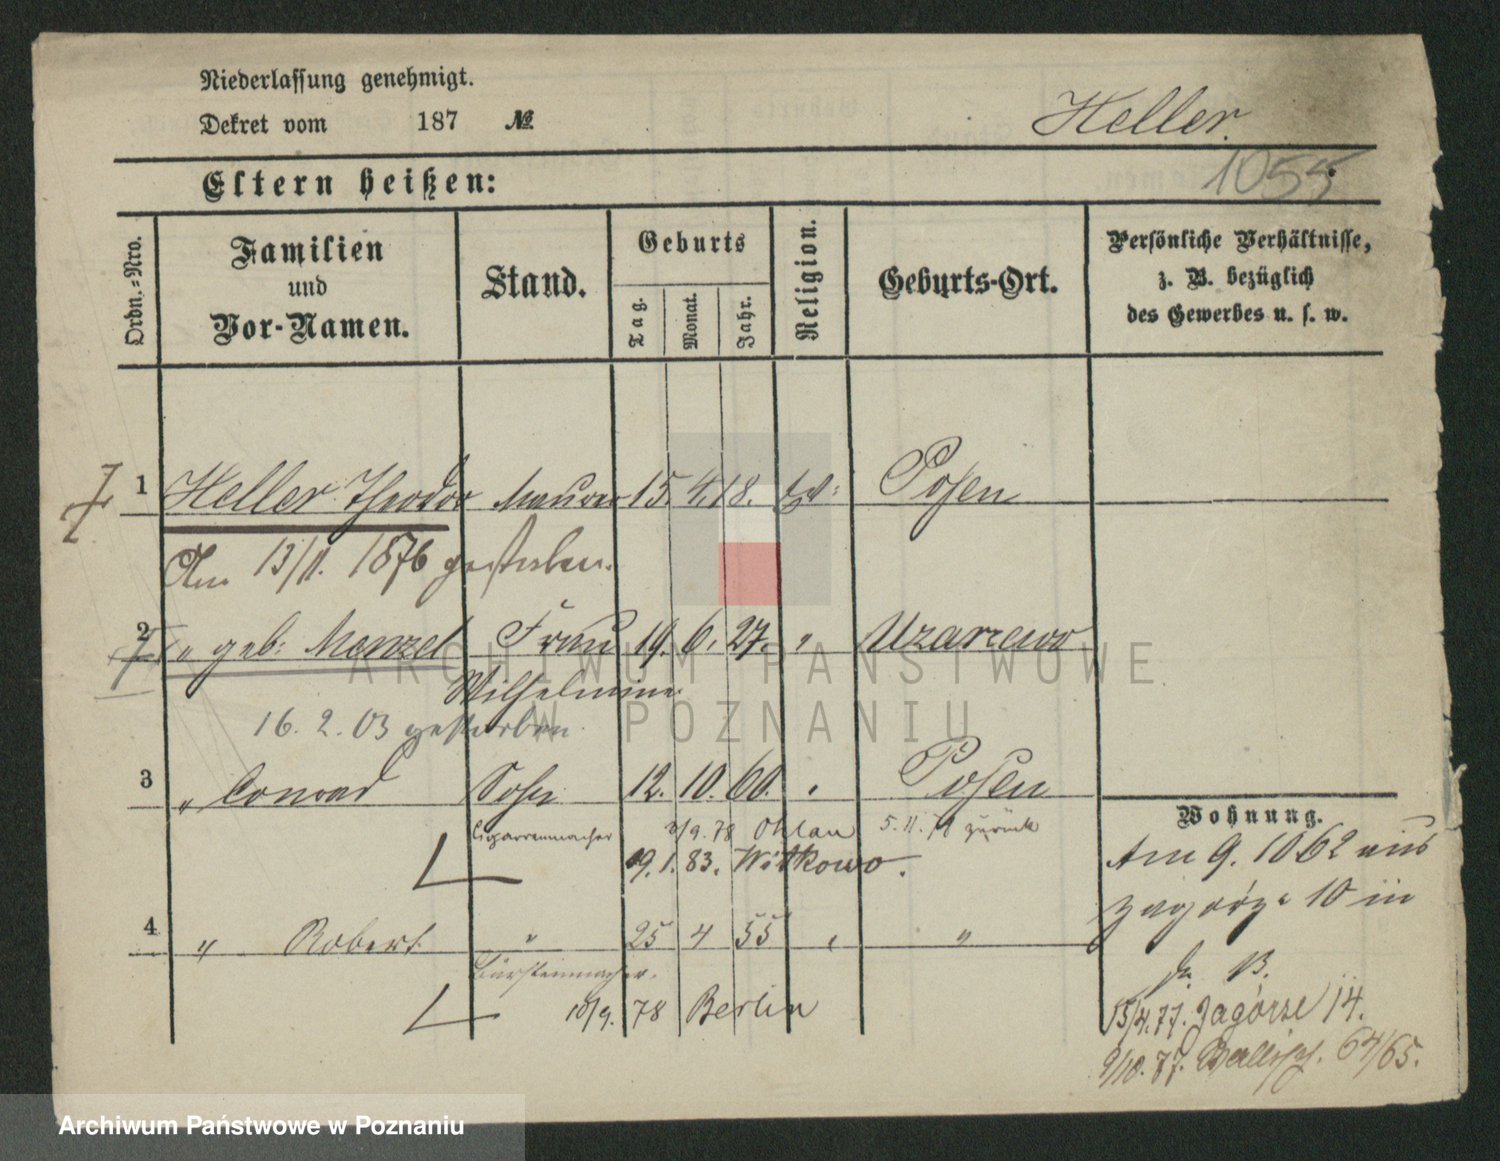 Niederlassung genehmigt.
Dekret vom 187 №
Heller.
1055
Eltern heißen:
Ordn.=Nro.
Familien und Vor-Namen.
Stand.
Geburts
Tag. Monat. Jahr.
Religion.
Geburts-Ort.
Persönliche Verhältnisse, z. B. bezüglich des Gewerbes u. s. w.
1 Heller Theodor Maurer 15. 4. 18. Posen
Am 13/11. 1876 gestorben.
2 " geb: Menzel Frau 19. 6. 27. " Uzarzewo
Wilhelmine
16. 2. 03 gestorben.
3 " Conrad Sohn 12. 10. 60. " Posen
Cigarrenmacher /9. 78 Ohlau 5. 11. 79 zurück
19. 1. 83. Witkowo.
4 " Robert " 25 4 55 " "
Bürstenmacher.
10/9. 78 Berlin
Wohnung.
Am 9. 10 62 aus
Zagórze 10 in
B.
15/4. 77. Zagórze 14.
9/10. 77. Wallisch. 64/65.
ARCHIWUM PAŃSTWOWE
W POZNANIU
Archiwum Państwowe w Poznaniu